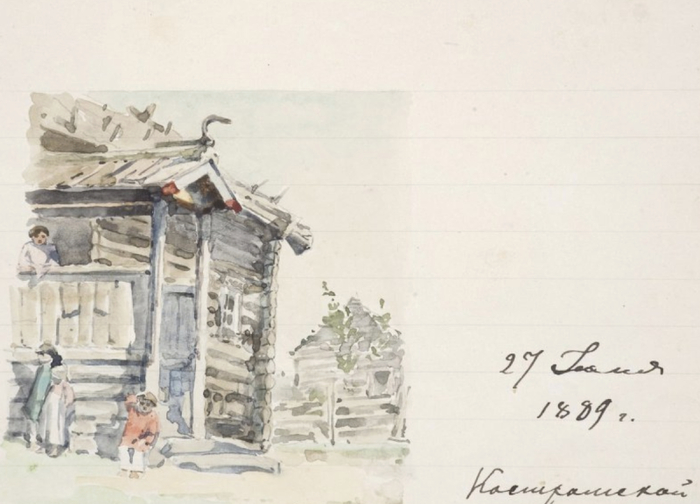 27
1889 г.
Костромской